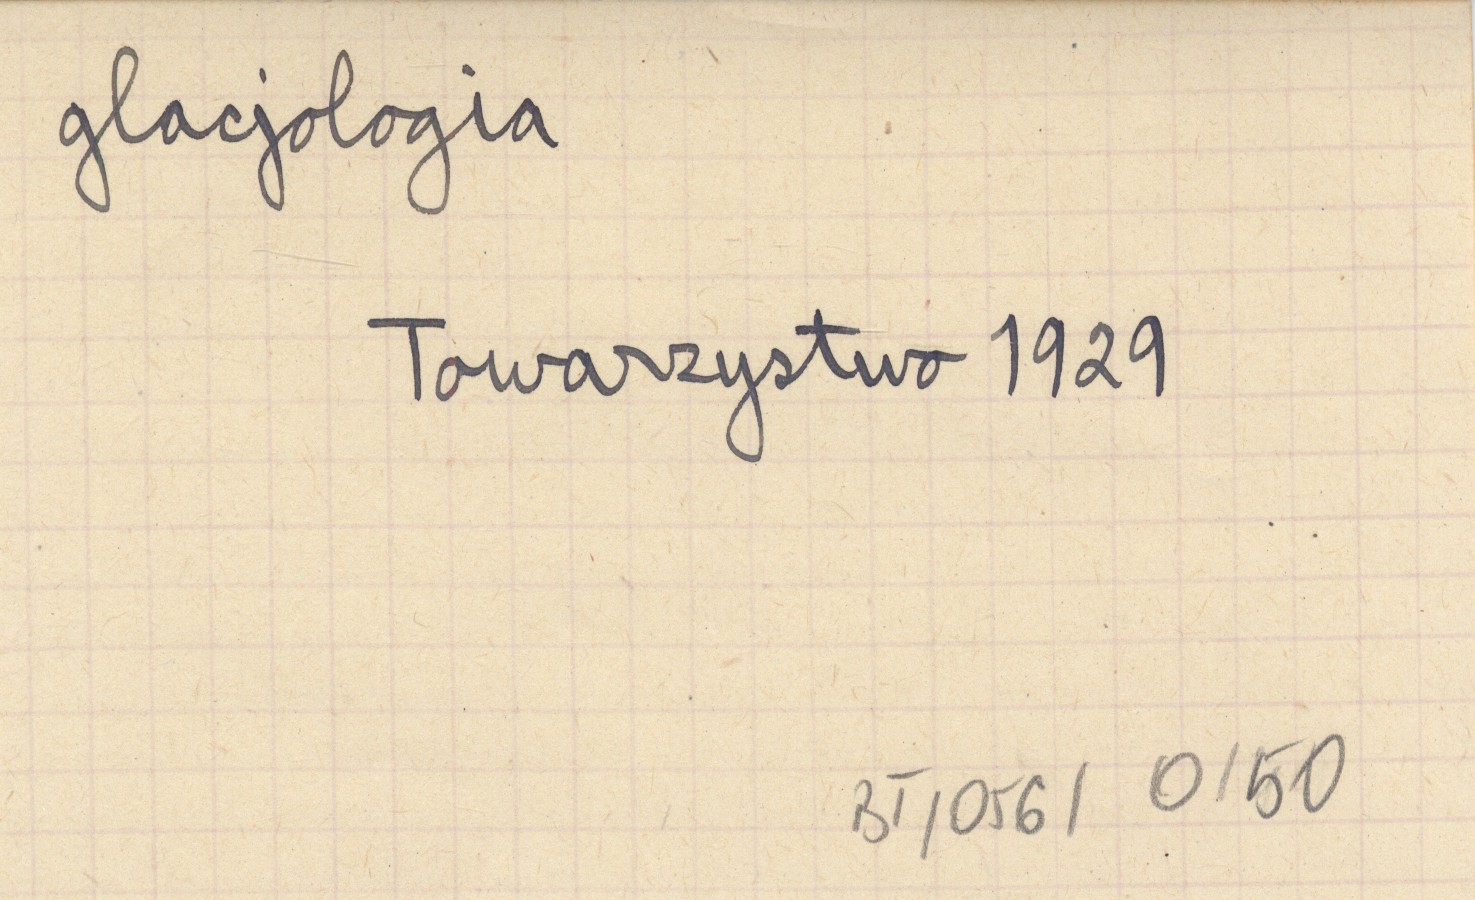 glacjologia
Towarzystwo 1929
BT/056/ 0/50